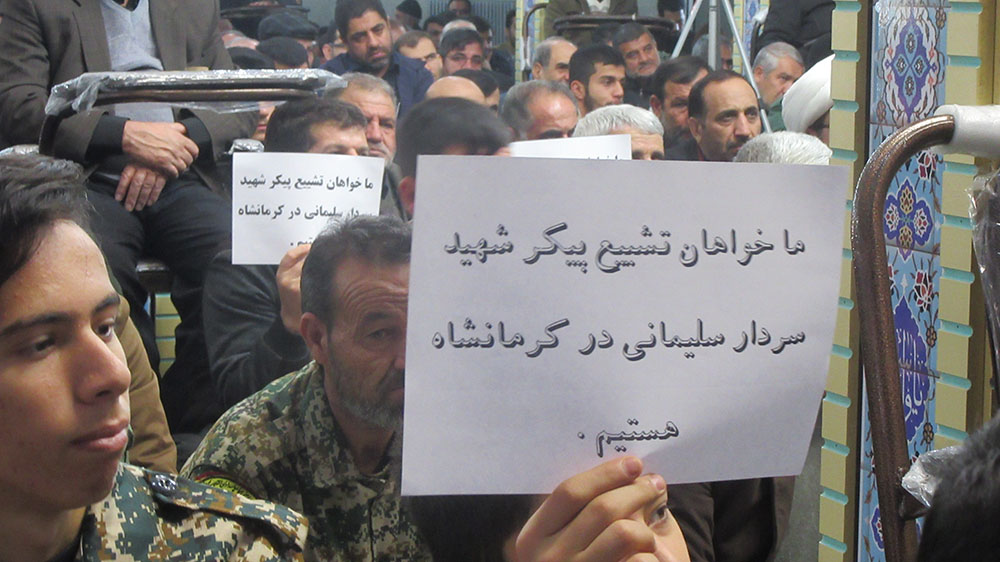 ما خواهان تشییع پیکر شهید
سردار سلیمانی در کرمانشاه
هستیم .
ما خواهان تشییع پیکر شهید
سردار سلیمانی در کرمانشاه